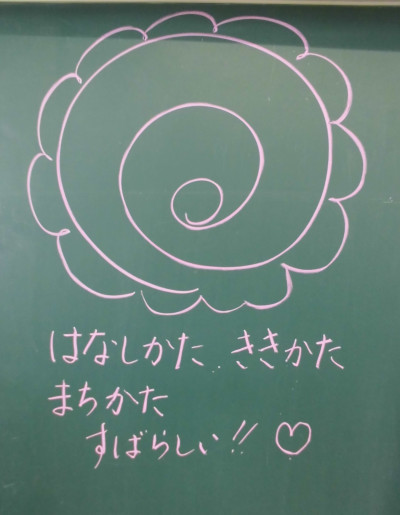 はなしかた、ききかた
まちかた
すばらしい!! ♡